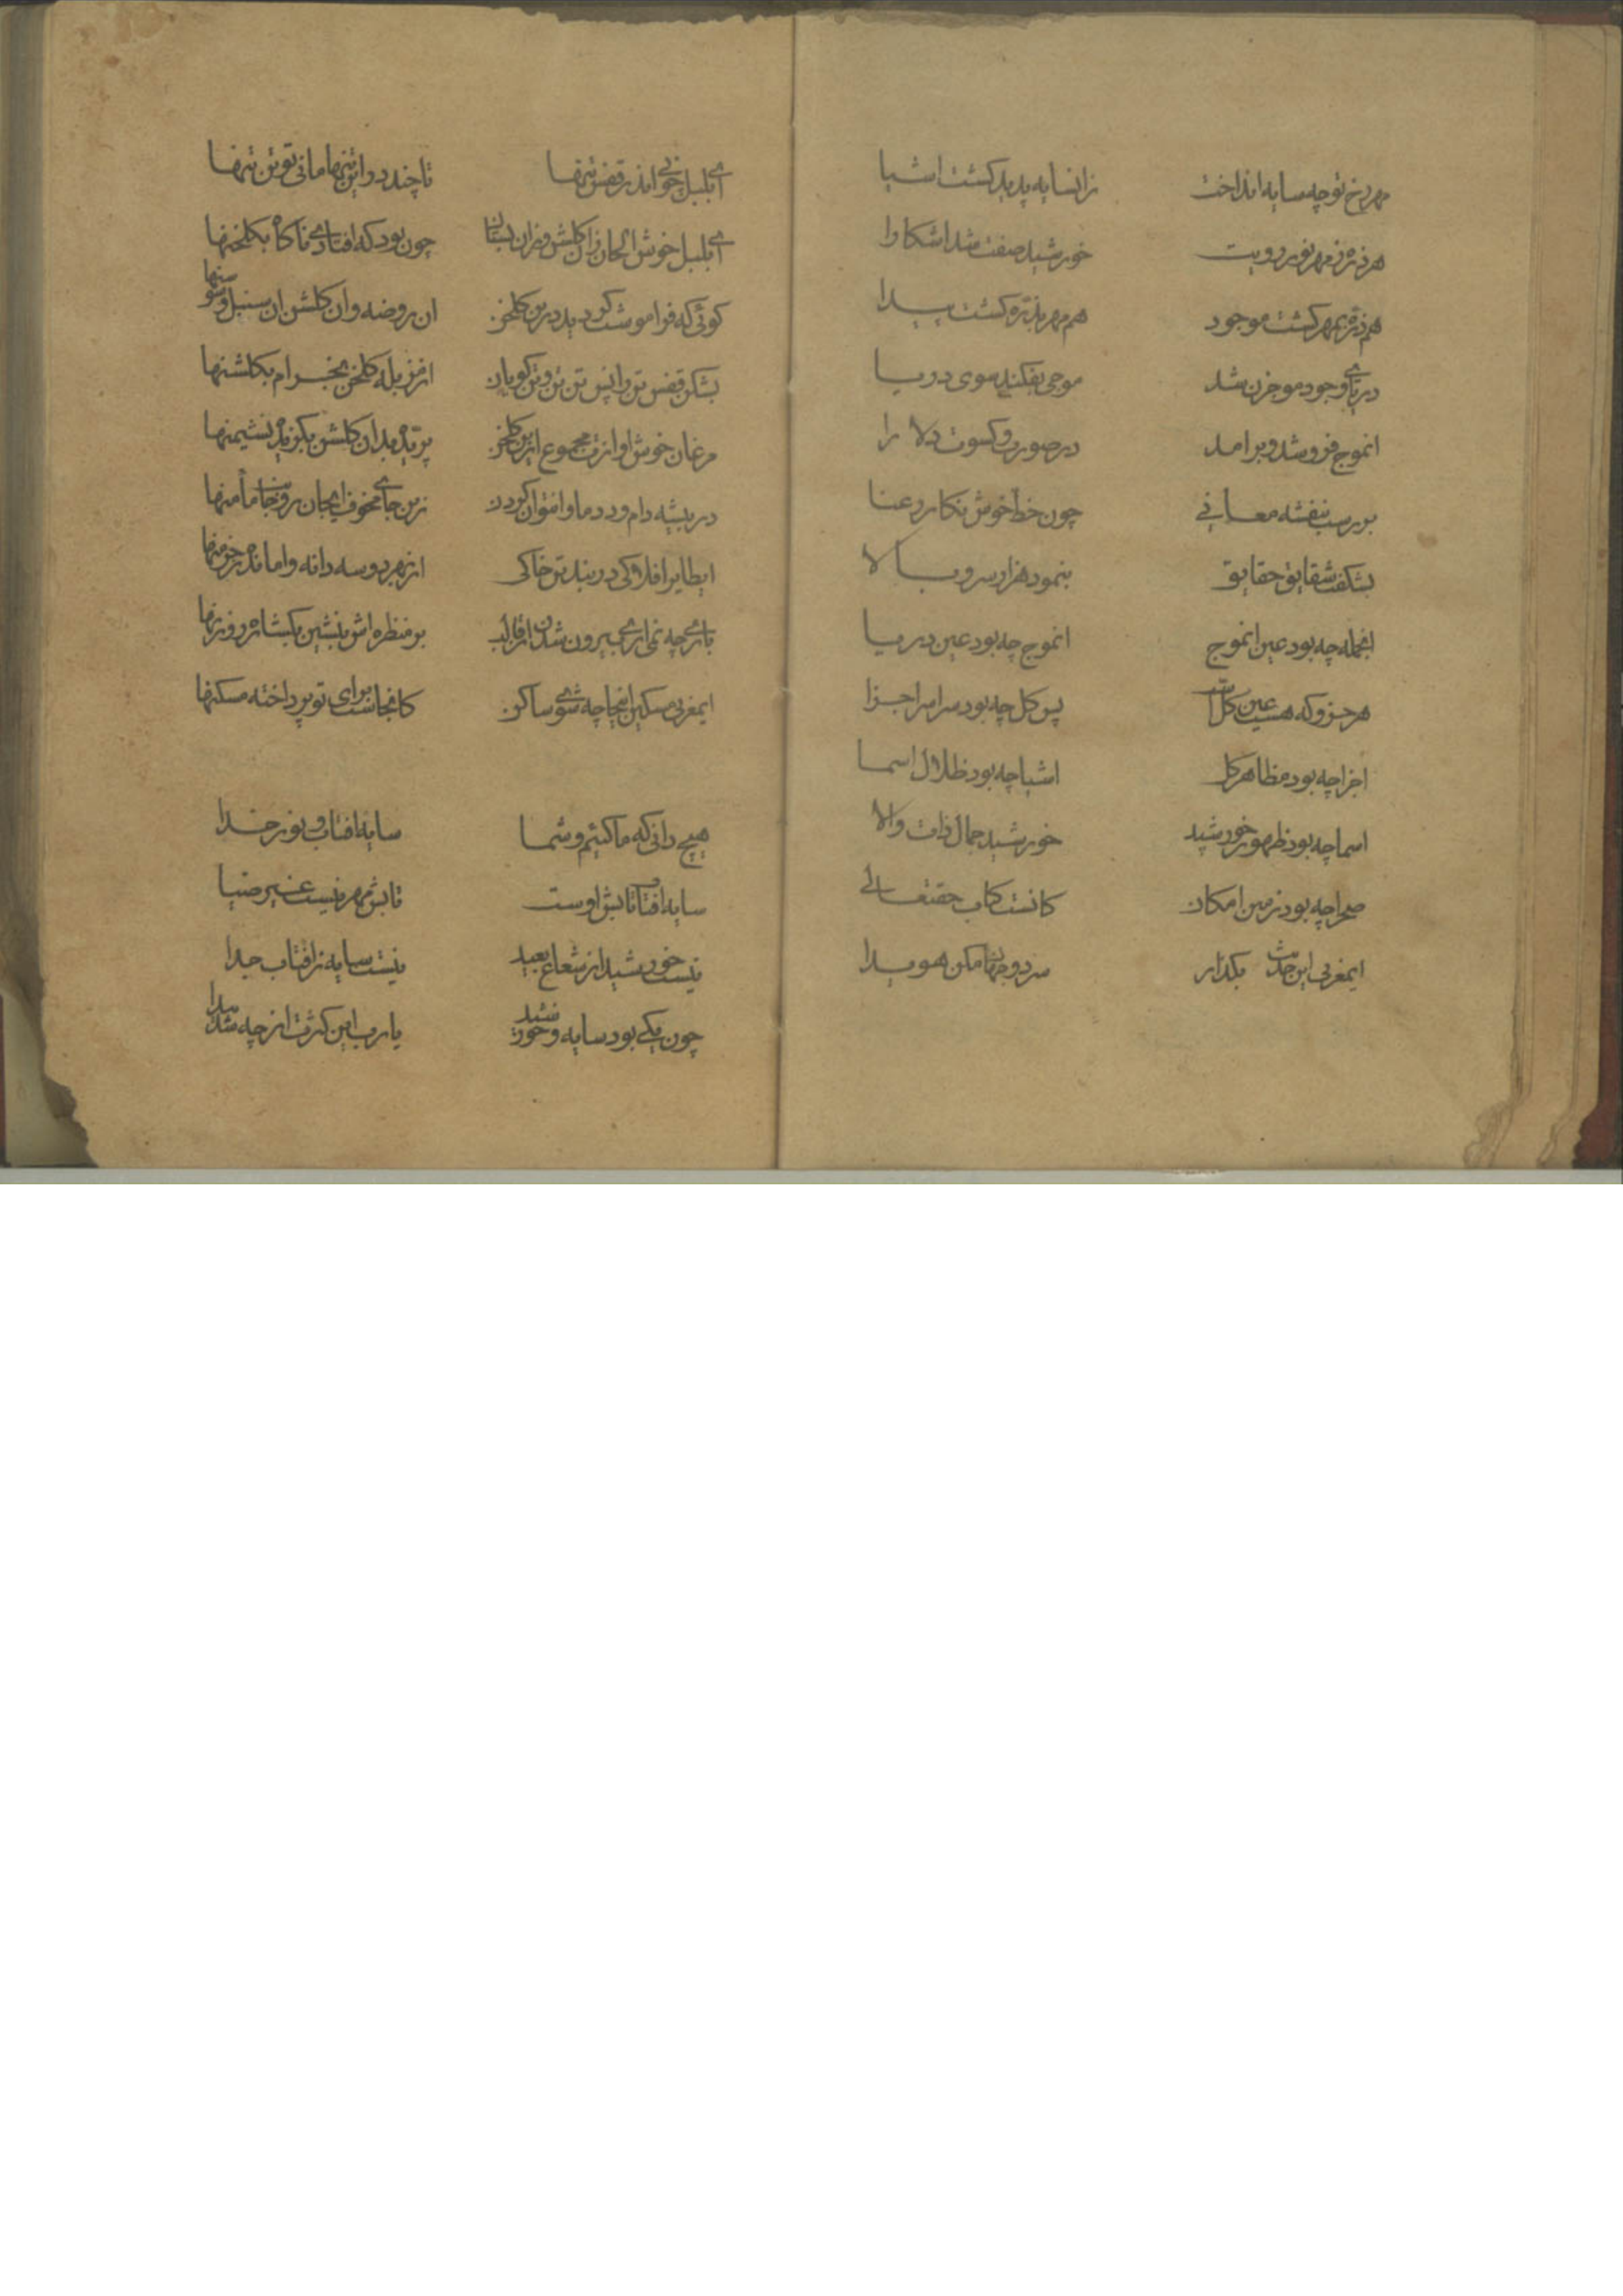 مهر رخ تو چه سایه انداخت زانسایه پدید کشت اشیا
هر ذره ز مهر نور رویت خورشید صفت شد اشکارا
هم ذره بمهر کشت موجود هم مهر بذره کشت پیدا
دریای وجود موجزن شد موجی بفکند سوی دریا
انموج فرو شد و برامد در صورت و کسوت دلارا
بر رست بنفشه معانی چون خط خوش نکار رعنا
بشکفت شقایق حقایق بنمود هزار سرو بالا
اینجمله چه بود عین انموج انموج چه بود عین دریا
هر جزو که هست عین کل است پس کل چه بود سراسر اجزا
اجزا چه بود مظاهر کل اشیا چه بود ظلال اسما
اسما چه بود ظهور خورشید خورشید جمال ذات والا
صحرا چه بود زمین امکان کانست کتاب حقتعالی
ایمغربی این حدیث بکذار سر دو جهان مکن هویدا
ای بلبل جانی اندر قفس تنها تا چند در این تنها مانی تو بتن تنها
ای بلبل خوش الحان زان کلشن و زان بستان چون بود که افتادی ناکاه بکلخنها
کوئی که فراموشت کردید درین کلخن ان روضه و ان کلشن ان سنبل و سوسنها
بشکن قفس تن را پس تن تن و تن کویان از مزبله کلخن بخرام بکلشنها
مرغان خوش اوازت مجموع ازین کلخن پریده بدان کلشن بکزیده نشیمنها
در بیشه دام و دد ماوا نتوان کردن زین جای مخوف ایجان رو جانب مأمنها
ایطایر افلاکی در بند تن خاکی از بهر دو سه دانه وامانده ز خرمنها
باری چه نمی اری بیرون شدن از قالب بر منظره اش بنشین بکشاده روزنها
ایمغربی مسکین اینجا چه شوی ساکن کانجاست برای تو پرداخته مسکنها
هیچ دانی که ما کئیم و شما سایه افتاب و نور خدا
سایه افتاب تابش اوست تابش مهر نیست غیر ضیا
نیست خورشید از شعاع بعید نیست سایه ز افتاب جدا
چون یکی بود سایه و خورشید یا رب این کثرت از چه شد پیدا